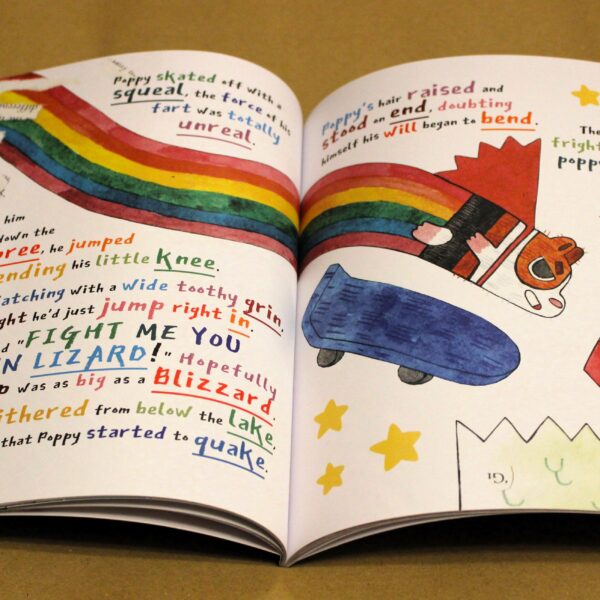 Poppy skated off with a
squeal, the force of his
fart was totally
unreal.
him
down the
, he jumped
ending his little Knee.
atching with a wide toothy grin.
ght he'd just jump right in.
d "FIGHT ME YOU
N LIZARD!" Hopefully
was as big as a Blizzard.
ithered from below the lake,
that Poppy started to quake.
Poppy's hair raised and
stood on end, doubting
himself his will began to bend.
The
fright
poppy